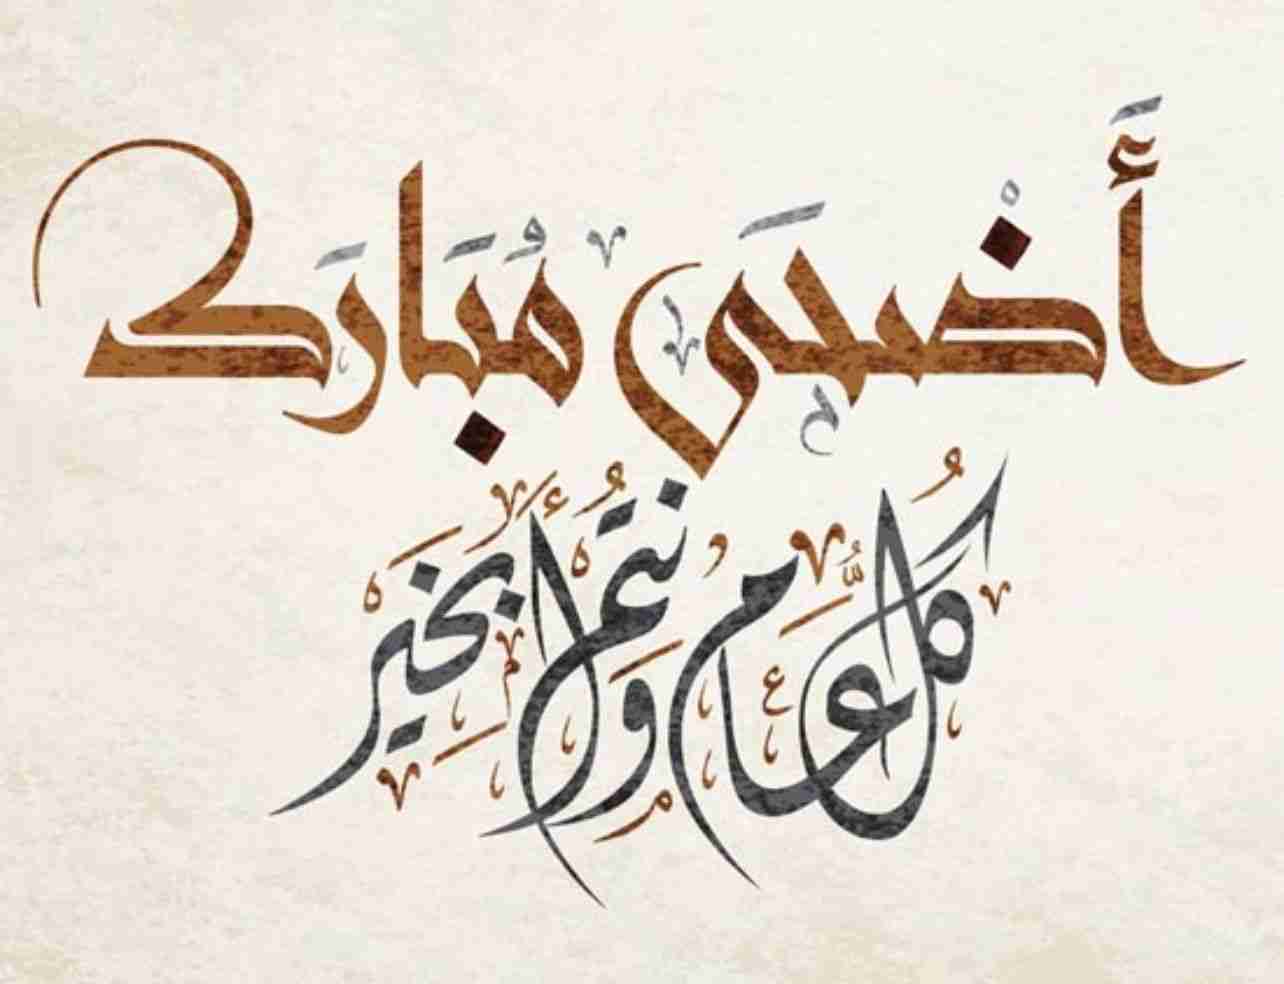 أَضْحَى مُبَارَك
كُلُّ عَام وَأَنتُمْ بِخَيْر